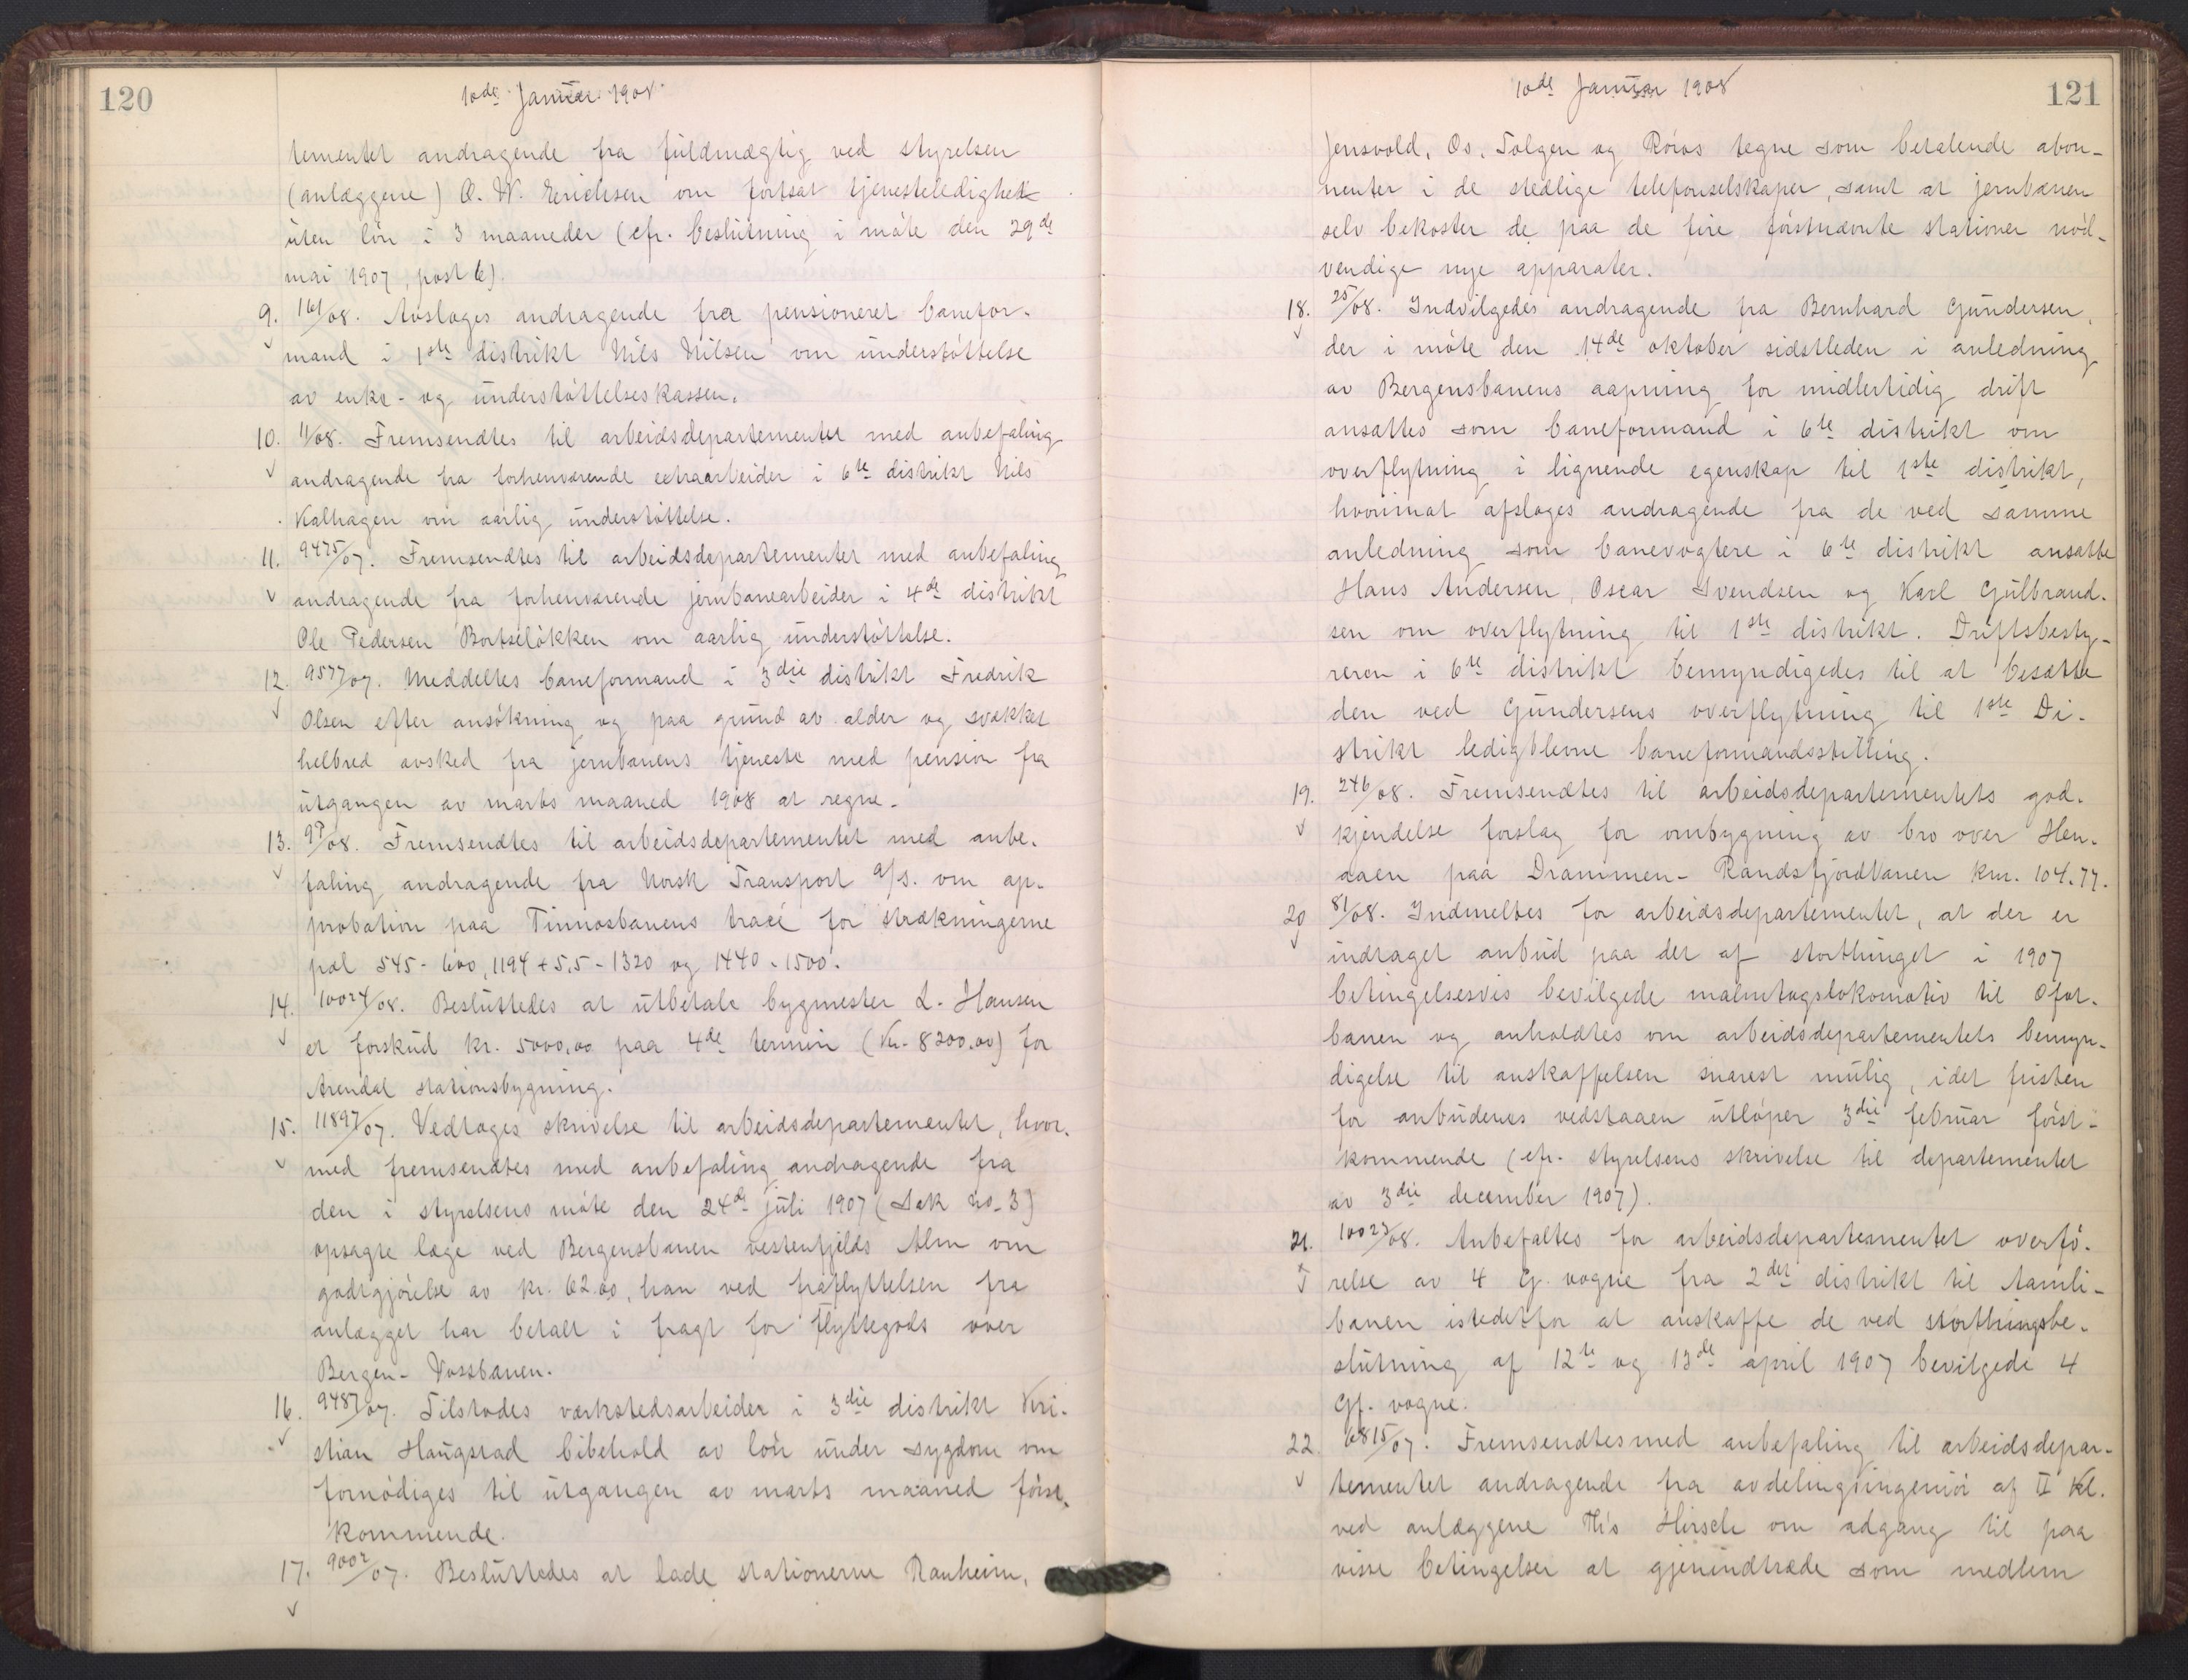 120
10de Januar 1908.
tementet andragende fra fuldmægtig ved styrelsen
(anlæggene) O. W. Erichsen om fortsat tjenesteledighet
uten løn i 3 maaneder (cfr. beslutning i møte den 29de
mai 1907, post 6).
9. 161/08. Avsloges andragende fra pensioneret banefor-
mand i 1ste distrikt Nils Nilsen om understøttelse
av enke- og understøttelseskassen.
10. 11/08. Fremsendtes til arbeidsdepartementet med anbefaling
andragende fra forhenværende extraarbeider i 6te distrikt Nils
Kalhagen om aarlig understøttelse.
11. 9475/07. Fremsendtes til arbeidsdepartementet med anbefaling
andragende fra forhenværende jernbanearbeider i 4de distrikt
Ole Pedersen Bortseløkken om aarlig understøttelse.
12. 9577/07. Meddeltes baneformand i 3die distrikt Fredrik
Olsen efter ansøkning og paa grund av alder og svækket
helbred avsked fra jernbanens tjeneste med pension fra
utgangen av marts maaned 1908 at regne.
13. 97/08. Fremsendtes til arbeidsdepartementet med anbe-
faling andragende fra Norsk Transport a/s. om ap-
probation paa Tinnosbanens tracé for strækningerne
pæl 545 - 600, 1194 + 5,5 - 1320 og 1440 - 1500.
14. 10024/08. Besluttedes at utbetale bygmester L. Hansen
et forskud kr. 5000,00 paa 4de termin (Kr. 8200,00) for
Arendal stationsbygning.
15. 11897/07. Vedtoges skrivelse til arbeidsdepartementet, hvor-
med fremsendtes med anbefaling andragende fra
den i styrelsens møte den 24de juli 1907 (Sak no. 3)
opsagte læge ved Bergensbanen vestenfjelds Alm om
godtgjørelse av kr. 62.00, han ved fraflyttelsen fra
anlægget har betalt i fragt for flyttegods over
Bergen - Vossbanen.
16. 9487/07. Tilstodes værkstedsarbeider i 3die distrikt Kri-
stian Haugstad bibehold av løn under sygdom om
fornødiges til utgangen av marts maaned først-
kommende.
17. 9002/07. Besluttedes at lade stationerne Ranheim,
121
10de Januar 1908
Jensvold, Os, Tolgen og Røros tegne som betalende abon-
nenter i de stedlige telefonselskaper, samt at jernbanen
selv bekoster de paa de fire førstnævnte stationer nød-
vendige nye apparater.
18. 25/08. Indvilgedes andragende fra Bernhard Gundersen,
der i møte den 14de oktober sidstleden i anledning
av Bergensbanens aapning for midlertidig drift
ansattes som baneformand i 6te distrikt om
overflytning i lignende egenskap til 1ste distrikt,
hvorimot afsloges andragende fra de ved samme
anledning som banevogtere i 6te distrikt ansatte
Hans Andersen, Oscar Svendsen og Karl Gulbrand-
sen om overflytning til 1ste distrikt. Driftsbesty-
reren i 6te distrikt bemyndigedes til at besætte
den ved Gundersens overflytning til 1ste Di-
strikt ledigblevne baneformandsstilling.
19. 246/08. Fremsendtes til arbeidsdepartementets god-
kjendelse forslag for ombygning av bro over Hen-
aaen paa Drammen - Randsfjordbanen km. 104.77.
20 81/08. Indmeltes for arbeidsdepartementet, at der er
indtaget anbud paa det af storthinget i 1907
betingelsesvis bevilgede malmtogslokomotiv til Ofot-
banen og anholdtes om arbeidsdepartementets bemyn-
digelse til anskaffelsen snarest mulig, idet fristen
for anbudenes vedstaaen utløper 3die februar først-
kommende (cfr. styrelsens skrivelse til departementet
av 3die december 1907).
21. 10023/08. Anbefaltes for arbeidsdepartementet overfø-
relse av 4 G. vogne fra 2det distrikt til Aamli-
banen istedetfor at anskaffe de ved storthingsbe-
slutning af 12te og 13de april 1907 bevilgede 4
Gf. vogne.
22. 6815/07. Fremsendtes med anbefaling til arbeidsdepar-
tementet andragende fra avdelingsingeniør af II Kl.
ved anlæggene Ths Hirsch om adgang til paa
visse betingelser at gjenindtræde som medlem